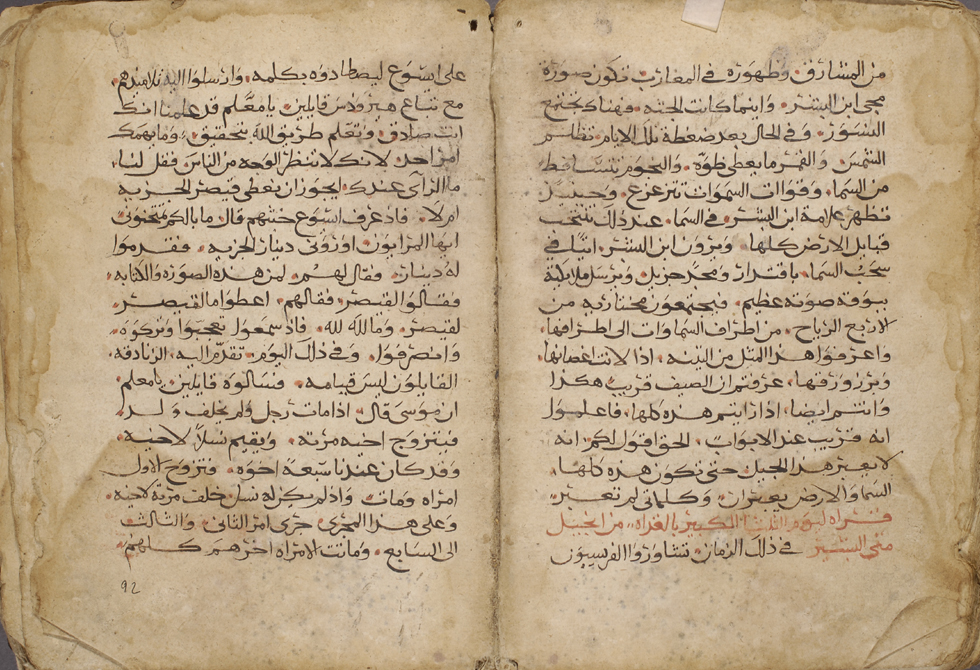 من المشارق وظهوره في المغارب تكون صورة
مجي ابن البشر واينما كانت الجثه فهناك يجتمع
النسور وفي الحال بعد ضغطة تلك الايام تظلم
الشمس والقمر ما يعطي ضوه والنجوم تتساقط
من السما وقوات السموات تتزعزع وحينيذ
تظهر علامة ابن البشر في السما عند ذلك تنتحب
قبايل الارض كلها ويرون ابن البشر اتيا في
سحب السما باقتدار ومجد جزيل ويرسل ملايكته
ببوقه صوته عظيم فيجتمعون مختاريه من
الاربع الرياح من اطراف السماوات الى اطرافها
واعرفوا هذا المثل من التينه اذا لانت اغصانها
وبرز ورقها عرفتم ان الصيف قريب هكذا
وانتم ايضا اذا رايتم هذه كلها فاعلموا
انه قريب عند الابواب الحق اقول لكم انه
لا يعبر هذا الجيل حتى تكون هذه كلها
السما والارض يعبران وكلماتي لم تعبر
قراه ليوم الثلثا الكبير بالغداه من انجيل
متى البشير في ذلك الزمان تشاوروا الفريسيون
على ايسوع ليصطادوه بكلمه وارسلوا اليه تلاميذهم
مع تباع هيرودس قايلين يا معلم قد علمنا انك
انت صادق وتعلم طريق الله بتحقيق وما يهمك
امر احد لانك لا تنظر الوجه من الناس فقل لنا
ما الراي عندك ايجوز ان يعطى قيصر الجزيه
ام لا فاذ عرف ايسوع خبثهم قال ما بالكم تمتحنوني
ايها المرايون اوروني دينار الجزيه فقدموا
له دينار فقال لهم لمن هذه الصوره والكتابه
فقالوا القيصر فقالهم اعطوا ما لقيصر
لقيصر وما لله لله فاذ سمعوا تعجبوا وتركوه
وانصرفوا وفي ذلك اليوم تقدم اليه الزنادقه
القايلون ليس قيامه فسالوه قايلين يا معلم
ان موسى قال اذا مات رجل ولم يخلف ولد
فيتزوج اخيه مرته ويقيم نسلا لاخيه
وقد كان عندنا سبعة اخوه فتزوج الاول
امراه ومات واذ لم يكن له نسل خلف مرته لاخيه
وعلى هذا المجرى جرى امر الثاني والثالث
الى السابع وماتت الامراه اخرهم كلهم
92